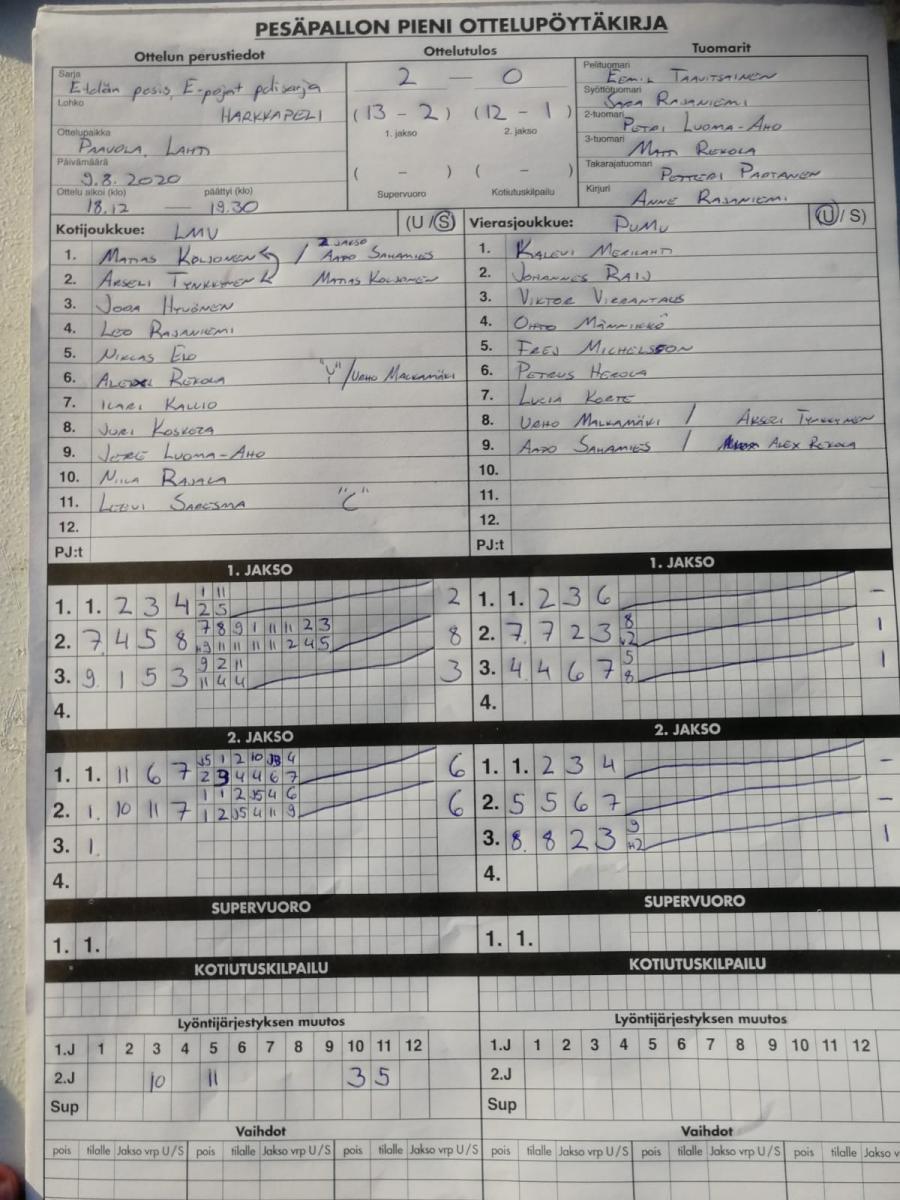 PESÄPALLON PIENI OTTELUPÖYTÄKIRJA
Ottelun perustiedot
Ottelutulos
Tuomarit
Sarja
Etelän pesis, E-pojat
Lohko
HARKKAPELI
Ottelupaikka
PAAVOLA, LAHTI
Päivämäärä
9.8.2020
Ottelu alkoi (klo) päättyi (klo)
18.12 — 19.30
2 — 0
(13 - 2) (12 - 1)
1. jakso 2. jakso
( - ) ( - )
Supervuoro Kotiutuskilpailu
Pelituomari
EEMIL TAAVITSAINEN
Syöttötuomari
SARA RAJANIEMI
2-tuomari
PETRI LUOMA-AHO
3-tuomari
MATTI REKOLA
Takarajatuomari
PETTERI PARTANEN
Kirjuri
ANNE RAJANIEMI
Kotijoukkue: LMV (U/S)
1. MATIAS KOLJONEN / 2 JAKSO AAPO SAHAMIES
2. AKSELI TYNKKYNEN MATIAS KOLJONEN
3. JOOA HYVÖNEN
4. LEO RAJANIEMI
5. NIKLAS ELO
6. REKOLA "V" / URHO MALKAMÄKI
7. ILARI KALLIO
8. JURI
9. LUOMA-AHO
10. NIILA RAJALA
11. LEEVI SARESMA "C"
12.
PJ:t
Vierasjoukkue: PUMU (U/S)
1. KALEVI MERILAHTI
2. JOHANNES
3. VIKTOR VIRRANTAUS
4. OHTO MÄNNIKKÖ
5. FREJ MICHELSSON
6. PETRUS HEROLA
7. LUCIA KORTE
8. URHO MALKAMÄKI / AKSELI TYNKKYNEN
9. AAPO SAHAMIES / ALEX REKOLA
10.
11.
12.
PJ:t
1. JAKSO
1. 1. 2 3 4 1 11 2
2 5
2. 7 4 5 8 7 8 9 1 11 11 2 3 8
9 11 11 11 11 2 4 5
3. 9 1 5 3 9 2 11 3
11 4 4
4.
1. JAKSO
1. 1. 2 3 6 —
2. 7 7 2 3 8 1
2
3. 4 4 6 7 5 1
8
4.
2. JAKSO
1. 1. 11 6 7 J5 1 2 10 4 6
2 3 4 4 6 7
2. 1. 10 11 7 1 1 2 J5 4 6 6
1 2 J5 4 11 9
3. 1.
4.
2. JAKSO
1. 1. 2 3 4 —
2. 5 5 6 7 —
3. 8 8 2 3 9 1
2
4.
SUPERVUORO
1. 1.
SUPERVUORO
1. 1.
KOTIUTUSKILPAILU
KOTIUTUSKILPAILU
Lyöntijärjestyksen muutos
1.J 1 2 3 4 5 6 7 8 9 10 11 12
2.J 10 11 3 5
Sup
Lyöntijärjestyksen muutos
1.J 1 2 3 4 5 6 7 8 9 10 11 12
2.J
Sup
Vaihdot
pois tilalle Jakso vrp U/S pois tilalle Jakso vrp U/S pois tilalle Jakso vrp U/S
Vaihdot
pois tilalle Jakso vrp U/S pois tilalle Jakso vrp U/S pois tilalle Jakso v